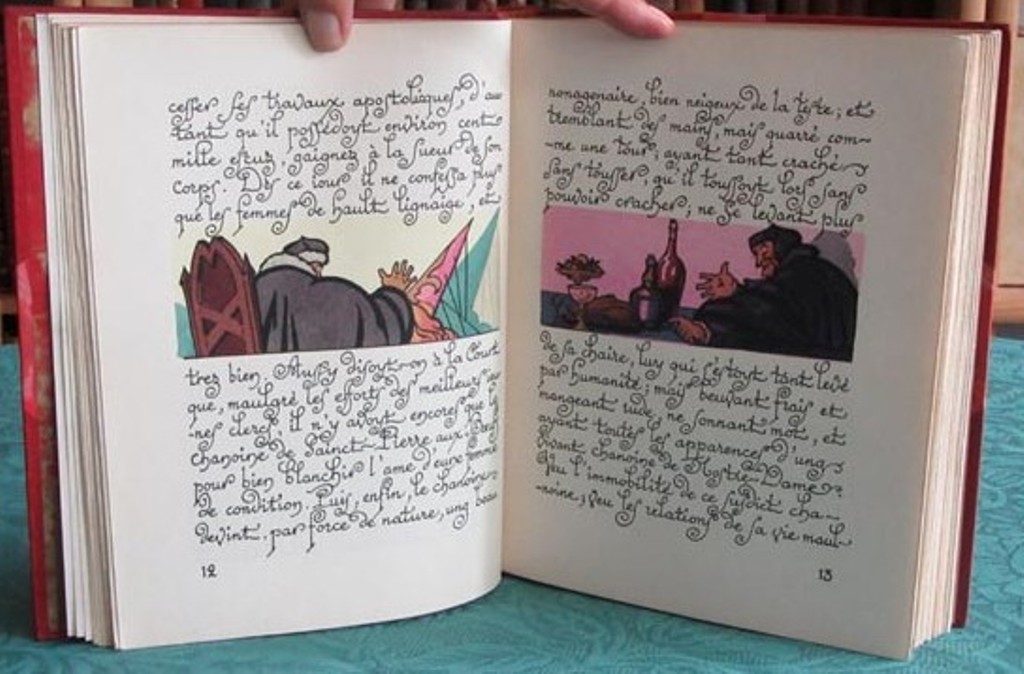 cesser ses travaux apostolicques, d'au
tant qu'il possedoyt environ cent
mille escuz, gaignez à la sueur de son
corps. Dès ce iour il ne confessa plus
que les femmes de hault lignaige, et
trez bien. Aussy disoyt-on à la Court
que, maulgré les efforts des meilleurs ieu-
-nes clercs, il n'y avoyt encores que le
chanoine de Sainct-Pierre aux Bœufs
pour bien blanchir l'ame d'eune femme
de condition. Puis, enfin, le chanoine
devint, par force de nature, ung beau
12
nonagenaire, bien neigeux de la teste; et
tremblant des mains, mais quarré com-
-me une tour; ayant tant craché
sans tousser, qu'il toussoyt lors sans
pouvoir cracher; ne se levant plus
de sa chaire, luy qui s'estoyt tant levé
par humanité; mais beuvant frais et
mangeant rude, ne sonnant mot, et
ayant toutes les apparences d'ung
vivant chanoine de Nostre-Dame.
Veu l'immobilité de ce susdict cha-
-noine; veu les relations de sa vie maul-
13